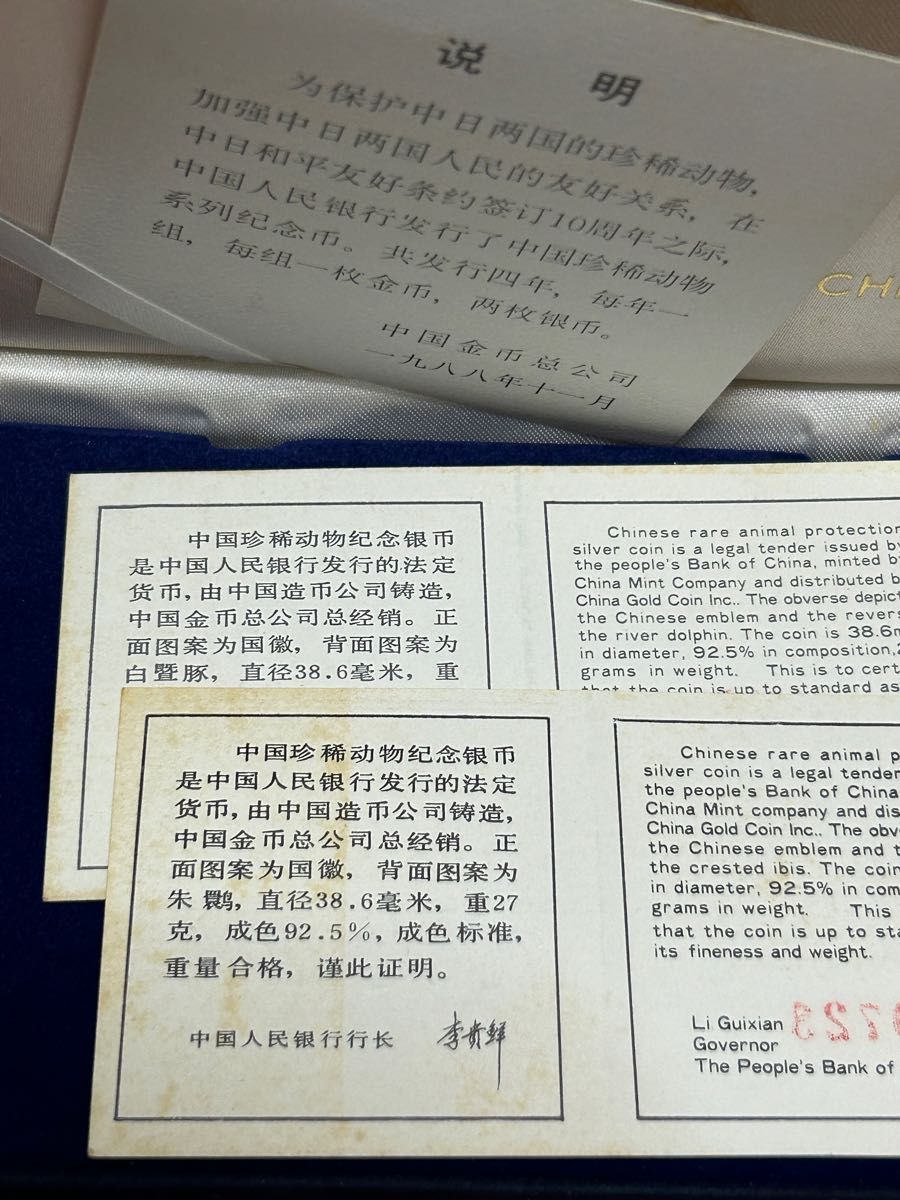 说 明
为保护中日两国的珍稀动物,
加强中日两国人民的友好关系, 在
中日和平友好条约签订10周年之际,
中国人民银行发行了中国珍稀动物
系列纪念币。共发行四年, 每年一
组, 每组一枚金币, 两枚银币。
中国金币总公司
一九八八年十一月
CH
中国珍稀动物纪念银币
是中国人民银行发行的法定
货币, 由中国造币公司铸造,
中国金币总公司总经销。正
面图案为国徽, 背面图案为
白暨豚, 直径38.6毫米, 重
Chinese rare animal protection
silver coin is a legal tender issued by
the people's Bank of China, minted by
China Mint Company and distributed b
China Gold Coin Inc.. The obverse depict
the Chinese emblem and the revers
the river dolphin. The coin is 38.6m
in diameter, 92.5% in composition,2
grams in weight. This is to cert
that the coin is up to standard as
中国珍稀动物纪念银币
是中国人民银行发行的法定
货币, 由中国造币公司铸造,
中国金币总公司总经销。正
面图案为国徽, 背面图案为
朱鹮, 直径38.6毫米, 重27
克, 成色92.5%, 成色标准,
重量合格, 谨此证明。
中国人民银行行长 李贵鲜
Chinese rare animal p
silver coin is a legal tender
the people's Bank of China
China Mint company and dis
China Gold Coin Inc.. The obv
the Chinese emblem and t
the crested ibis. The coin
in diameter, 92.5% in com
grams in weight. This
that the coin is up to sta
its fineness and weight.
Li Guixian
Governor
The People's Bank of